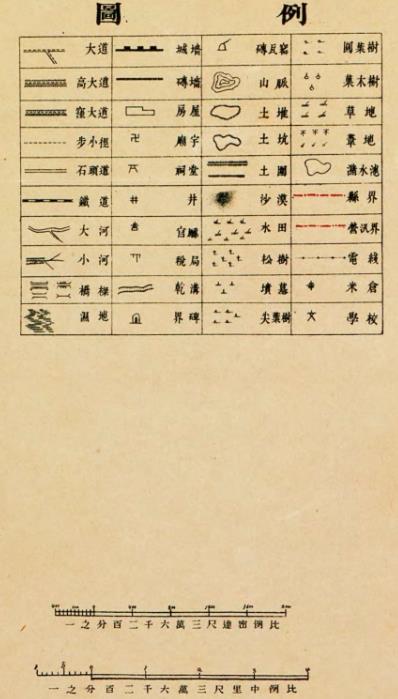 圖例
大道 城墙 磚瓦窰 圓葉樹
高大道 磚墙 山脈 葉木樹
窪大道 房屋 土堆 草地
步小徑 廟宇 土坑 葦地
石頭道 祠堂 土圍 水池
鐵道 井 沙漠 縣界
大河 官廨 水田 營汛界
小河 稅局 松樹 電綫
橋樑 乾溝 墳墓 米倉
濕地 界碑 尖葉樹 學校
比例密達尺三萬六千二百分之一
比例中里尺三萬六千二百分之一